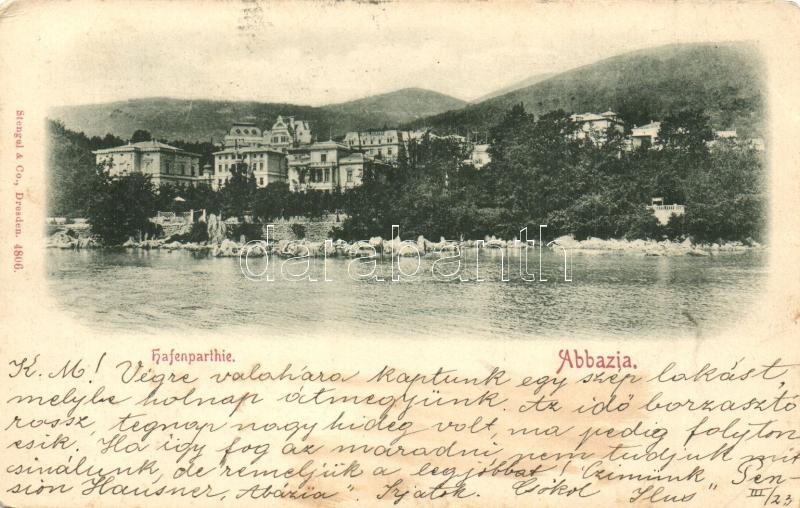 Stengel & Co., Dresden. 4806.
darabanth
Hafenparthie.
Abbazia.
K. M! Végre valahára kaptunk egy szép lakást,
melybe holnap átmegyünk. Az idő borzasztó
rossz, tegnap nagy hideg volt ma pedig folyton
esik. Ha így fog az maradni, nem tudjuk mit
csinálunk, de reméljük a legjobbat! Czimünk "Pen-
sion Hausner, Abázia". Irjatok. Csókol Ilus
III/23